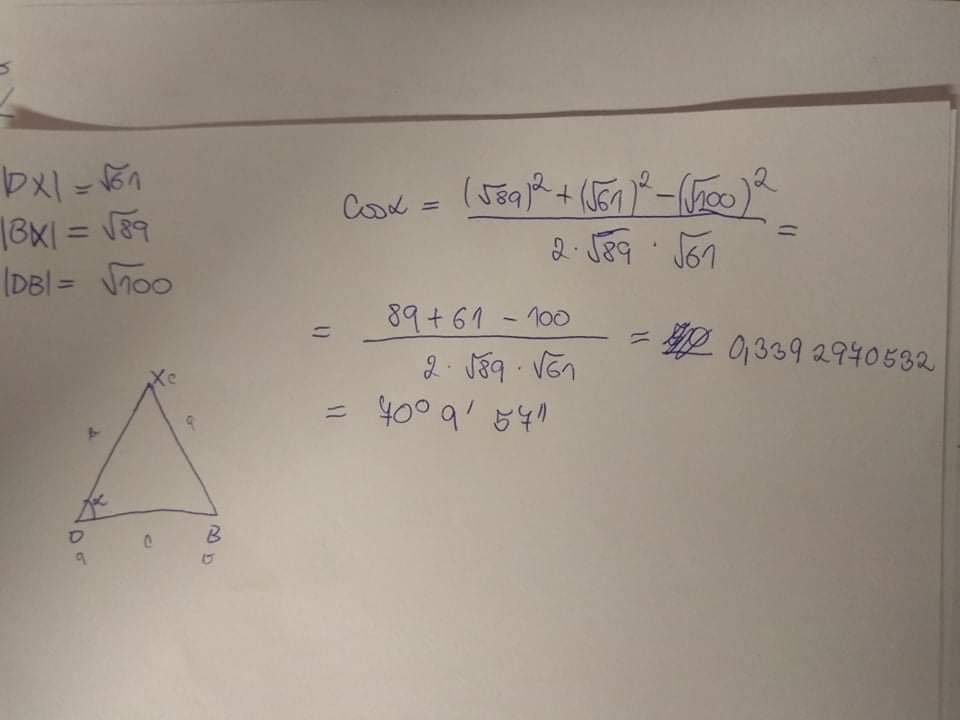 |DX| = √61
|BX| = √89
|DB| = √100
cos α = ((√89)² + (√61)² − (√100)²) / (2·√89 · √61) =
= (89 + 61 − 100) / (2·√89 · √61) = 0,3392970532
= 70° 9' 57"
X c
a
α
D B
a c b